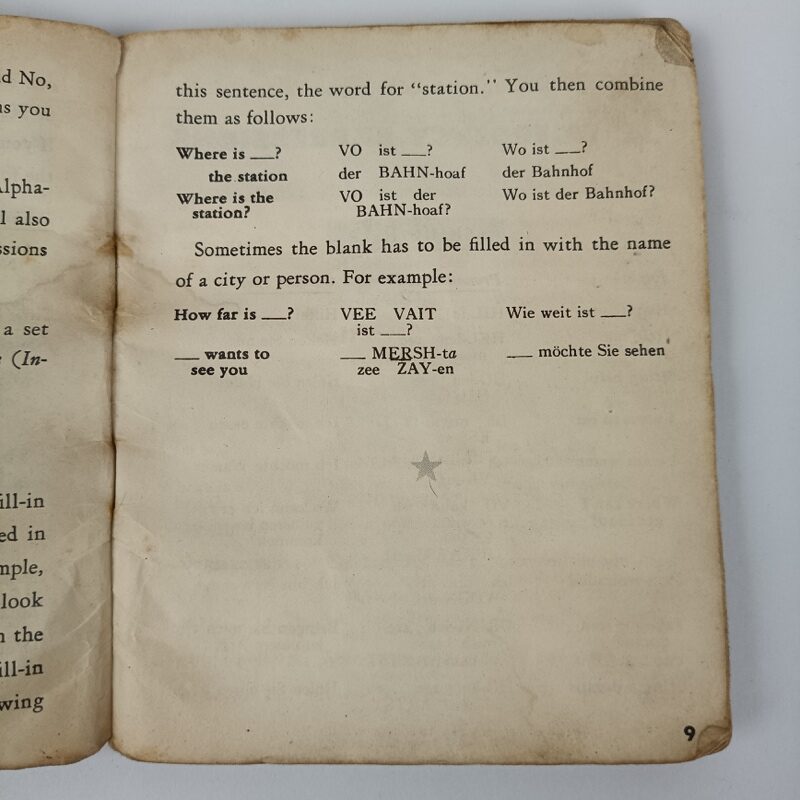 d No,
as you
Alpha-
l also
ssions
a set
(In-
ill-in
ed in
mple,
look
n the
ill-in
wing
this sentence, the word for “station.” You then combine
them as follows:
Where is ___? VO ist ___? Wo ist ___?
the station der BAHN-hoaf der Bahnhof
Where is the VO ist der Wo ist der Bahnhof?
station? BAHN-hoaf?
Sometimes the blank has to be filled in with the name
of a city or person. For example:
How far is ___? VEE VAIT Wie weit ist ___?
ist ___?
___ wants to ___ MERSH-ta ___ möchte Sie sehen
see you zee ZAY-en
9